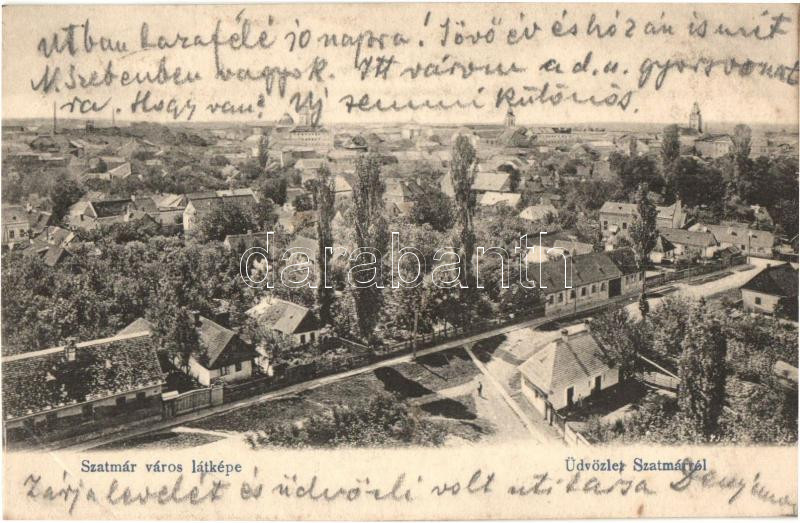 útban hazafelé 10 napra! Jövő év és hó z án ismét
N.Szebenben vagyok. Itt várom a d.u. gyorsvonat
ra. Hogy van? Uj semmi különös.
darabanth
Szatmár város látképe
Üdvözlet Szatmárról
Zárja levelét és üdvözli volt uti társa Dénes